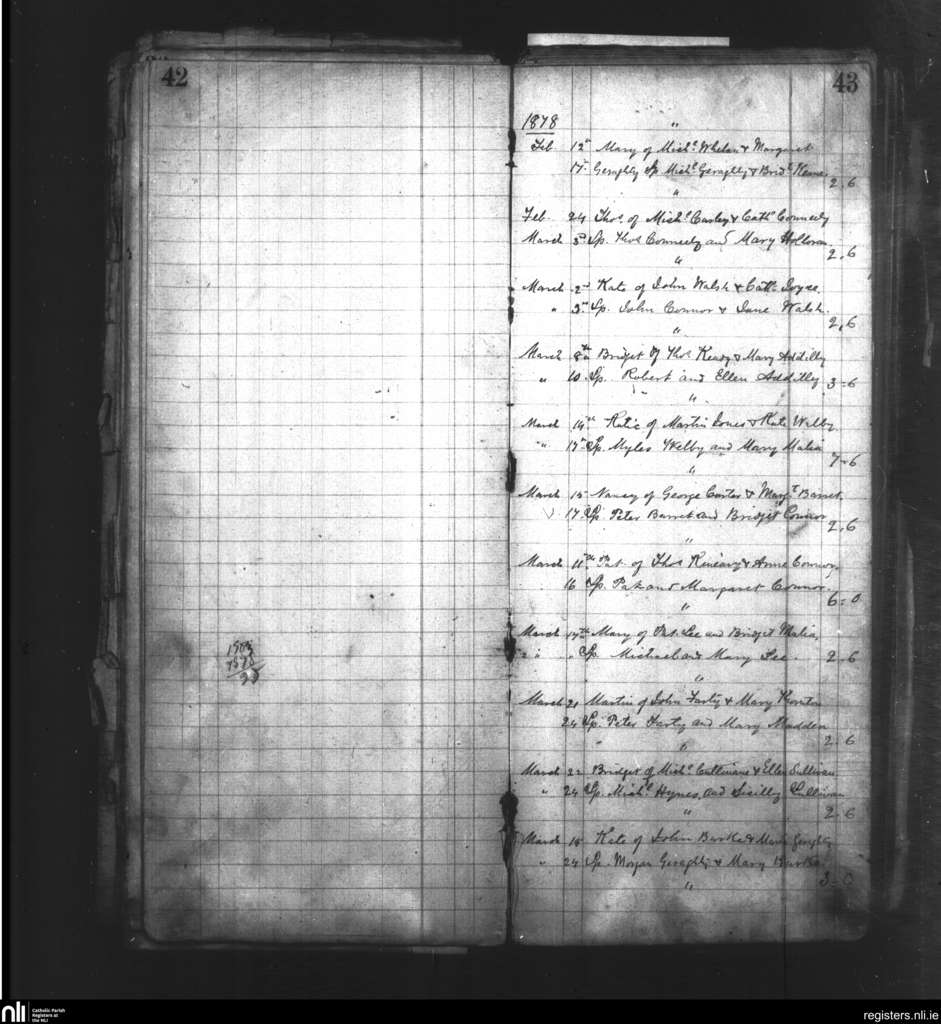 42
1903
1878
25
43
1878
"
Feb 12th Mary of Michl Whelan & Margaret
17 Geraghty Sp. Michl Geraghty & Bridt Keane 2.6
"
Feb. 24 Thos of Michl Carley & Cathe Conneely
March 3rd Sp. Thos Conneely and Mary Holloran 2.6
"
March 2nd Kate of John Walsh & Cathe Joyce
" 3rd Sp. John Connor & Jane Walsh. 2.6
"
March 8th Bridget of Thos Keady & Mary Addilly
" 10 Sp. Robert and Ellen Addilly 3-6
"
March 14th Katie of Martin Jones & Kate Welby
" 17th Sp. Myles Welby and Mary Malia 7-6
"
March 15 Nancy of George Carter & Margt Barret.
17 Sp. Peter Barret and Bridget Connor 2.6
"
March 11th Pat. of Thos & Anne Connor,
16 Sp. Pat and Margaret Connor. 6-0
"
March 17th Mary of Pat. Lee and Bridget Malia,
" " Sp. Michael and Mary Lee. 2 6
"
March 21 Martin of John Farty & Mary
24 Sp. Peter Farty and Mary Madden 2-6
"
March 22 Bridget of Michl Cullinane & Ellen Sullivan
" 24 Sp. Michl Hynes, and Sicilly Sullivan 2-6
"
March 18 Kate of John Burke & Maria Geraghty
" 24 Sp. Morgan Geraghty & Mary Burke 3-0
"
nli
Catholic Parish
Registers at
the NLI
registers.nli.ie